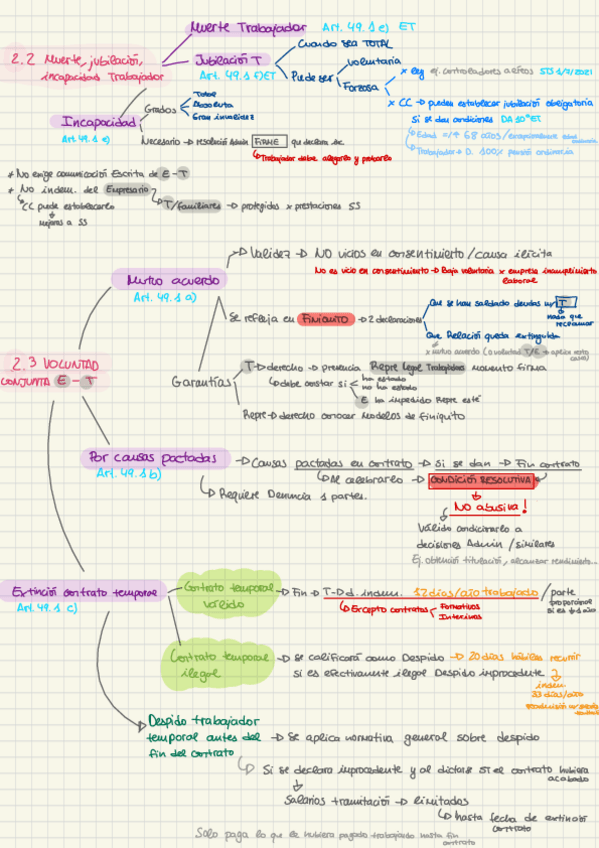 Muerte Trabajador Art. 49.1 e) ET
2.2 Muerte, jubilación,
incapacidad Trabajador
Jubilación T
Art. 49.1 f) ET
Cuando sea TOTAL
Puede ser
Voluntaria
Forzosa
x ley ej. controladores aéreos
x CC → pueden establecer jubilación obligatoria
si se dan condiciones DA 10ª ET
Edad =/+ 68 años/
Trabajador → D. 100% pensión ordinaria
Incapacidad
Art. 49.1 e)
Grados
Total
Absoluta
Gran invalidez
Necesario → resolución Admin FIRME que declara inc.
Trabajador debe alegarlo y probarlo
* No exige comunicación Escrita de E - T
* No indem. del Empresario
CC puede establecerlo
mejoras a SS
T/Familiares → protegidos x prestaciones SS
2.3 VOLUNTAD
CONJUNTA E - T
Mutuo acuerdo
Art. 49.1 a)
Validez → NO vicios en consentimiento/causa ilícita
No es vicio en consentimiento → Baja voluntaria x empresa incumplimiento
laboral
Se refleja en FINIQUITO → 2 declaraciones
Que se han saldado deudas T
nada que
reclamar
Que Relación queda extinguida
Garantías
T → derecho → presencia Repre Legal Trabajador momento firma
debe constar si
ha estado
no ha estado
E ha impedido Repre esté
Repre → derecho conocer modelos de finiquito
Por causas pactadas
Art. 49.1 b)
→ Causas pactadas en contrato → si se dan → Fin contrato
Al celebrarlo → CONDICIÓN RESOLUTIVA
Requiere Denuncia 1 partes.
No abusiva!
Válido condicionarlo a
decisiones Admin / similares
Ej. obtención titulación, alcanzar rendimiento...
Extinción contrato temporal
Art. 49.1 c)
Contrato temporal
válido
→ Fin → T → d. indem. 12 días/año trabajado / parte
proporcional
si es ↓ 1 año
Excepto contratos
Formativos
Interinos
Contrato temporal
ilegal
→ Se calificará como Despido → 20 días hábiles recurrir
si es efectivamente ilegal Despido improcedente
indem.
33 días/año
Despido trabajador
temporal antes del
fin del contrato
→ Se aplica normativa general sobre despido
Si se declara improcedente y al dictarse ST el contrato hubiera
acabado
Salarios tramitación → limitados
hasta fecha de extinción
contrato
Solo paga lo que le hubiera pagado trabajando hasta fin
contrato